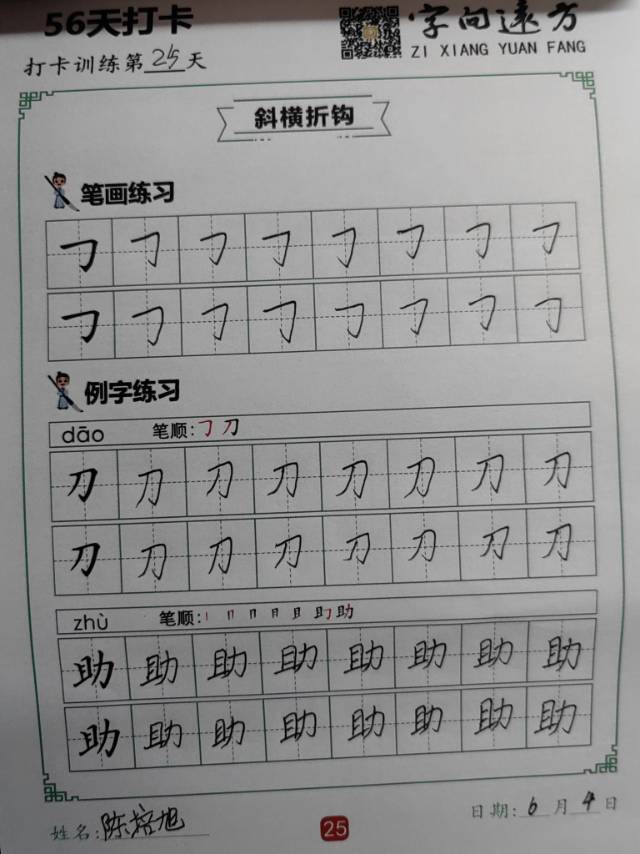 56天打卡
字向远方
ZI XIANG YUAN FANG
打卡训练第25天
斜横折钩
笔画练习
㇆㇆㇆㇆㇆㇆㇆㇆
㇆㇆㇆㇆㇆㇆㇆㇆
例字练习
dāo 笔顺:㇆刀
刀刀刀刀刀刀刀刀
刀刀刀刀刀刀刀刀
zhù 笔顺:丨 冂 月 且 助
助助助助助助助助
助助助助助助助助
姓名:陈培旭
25
日期:6月4日